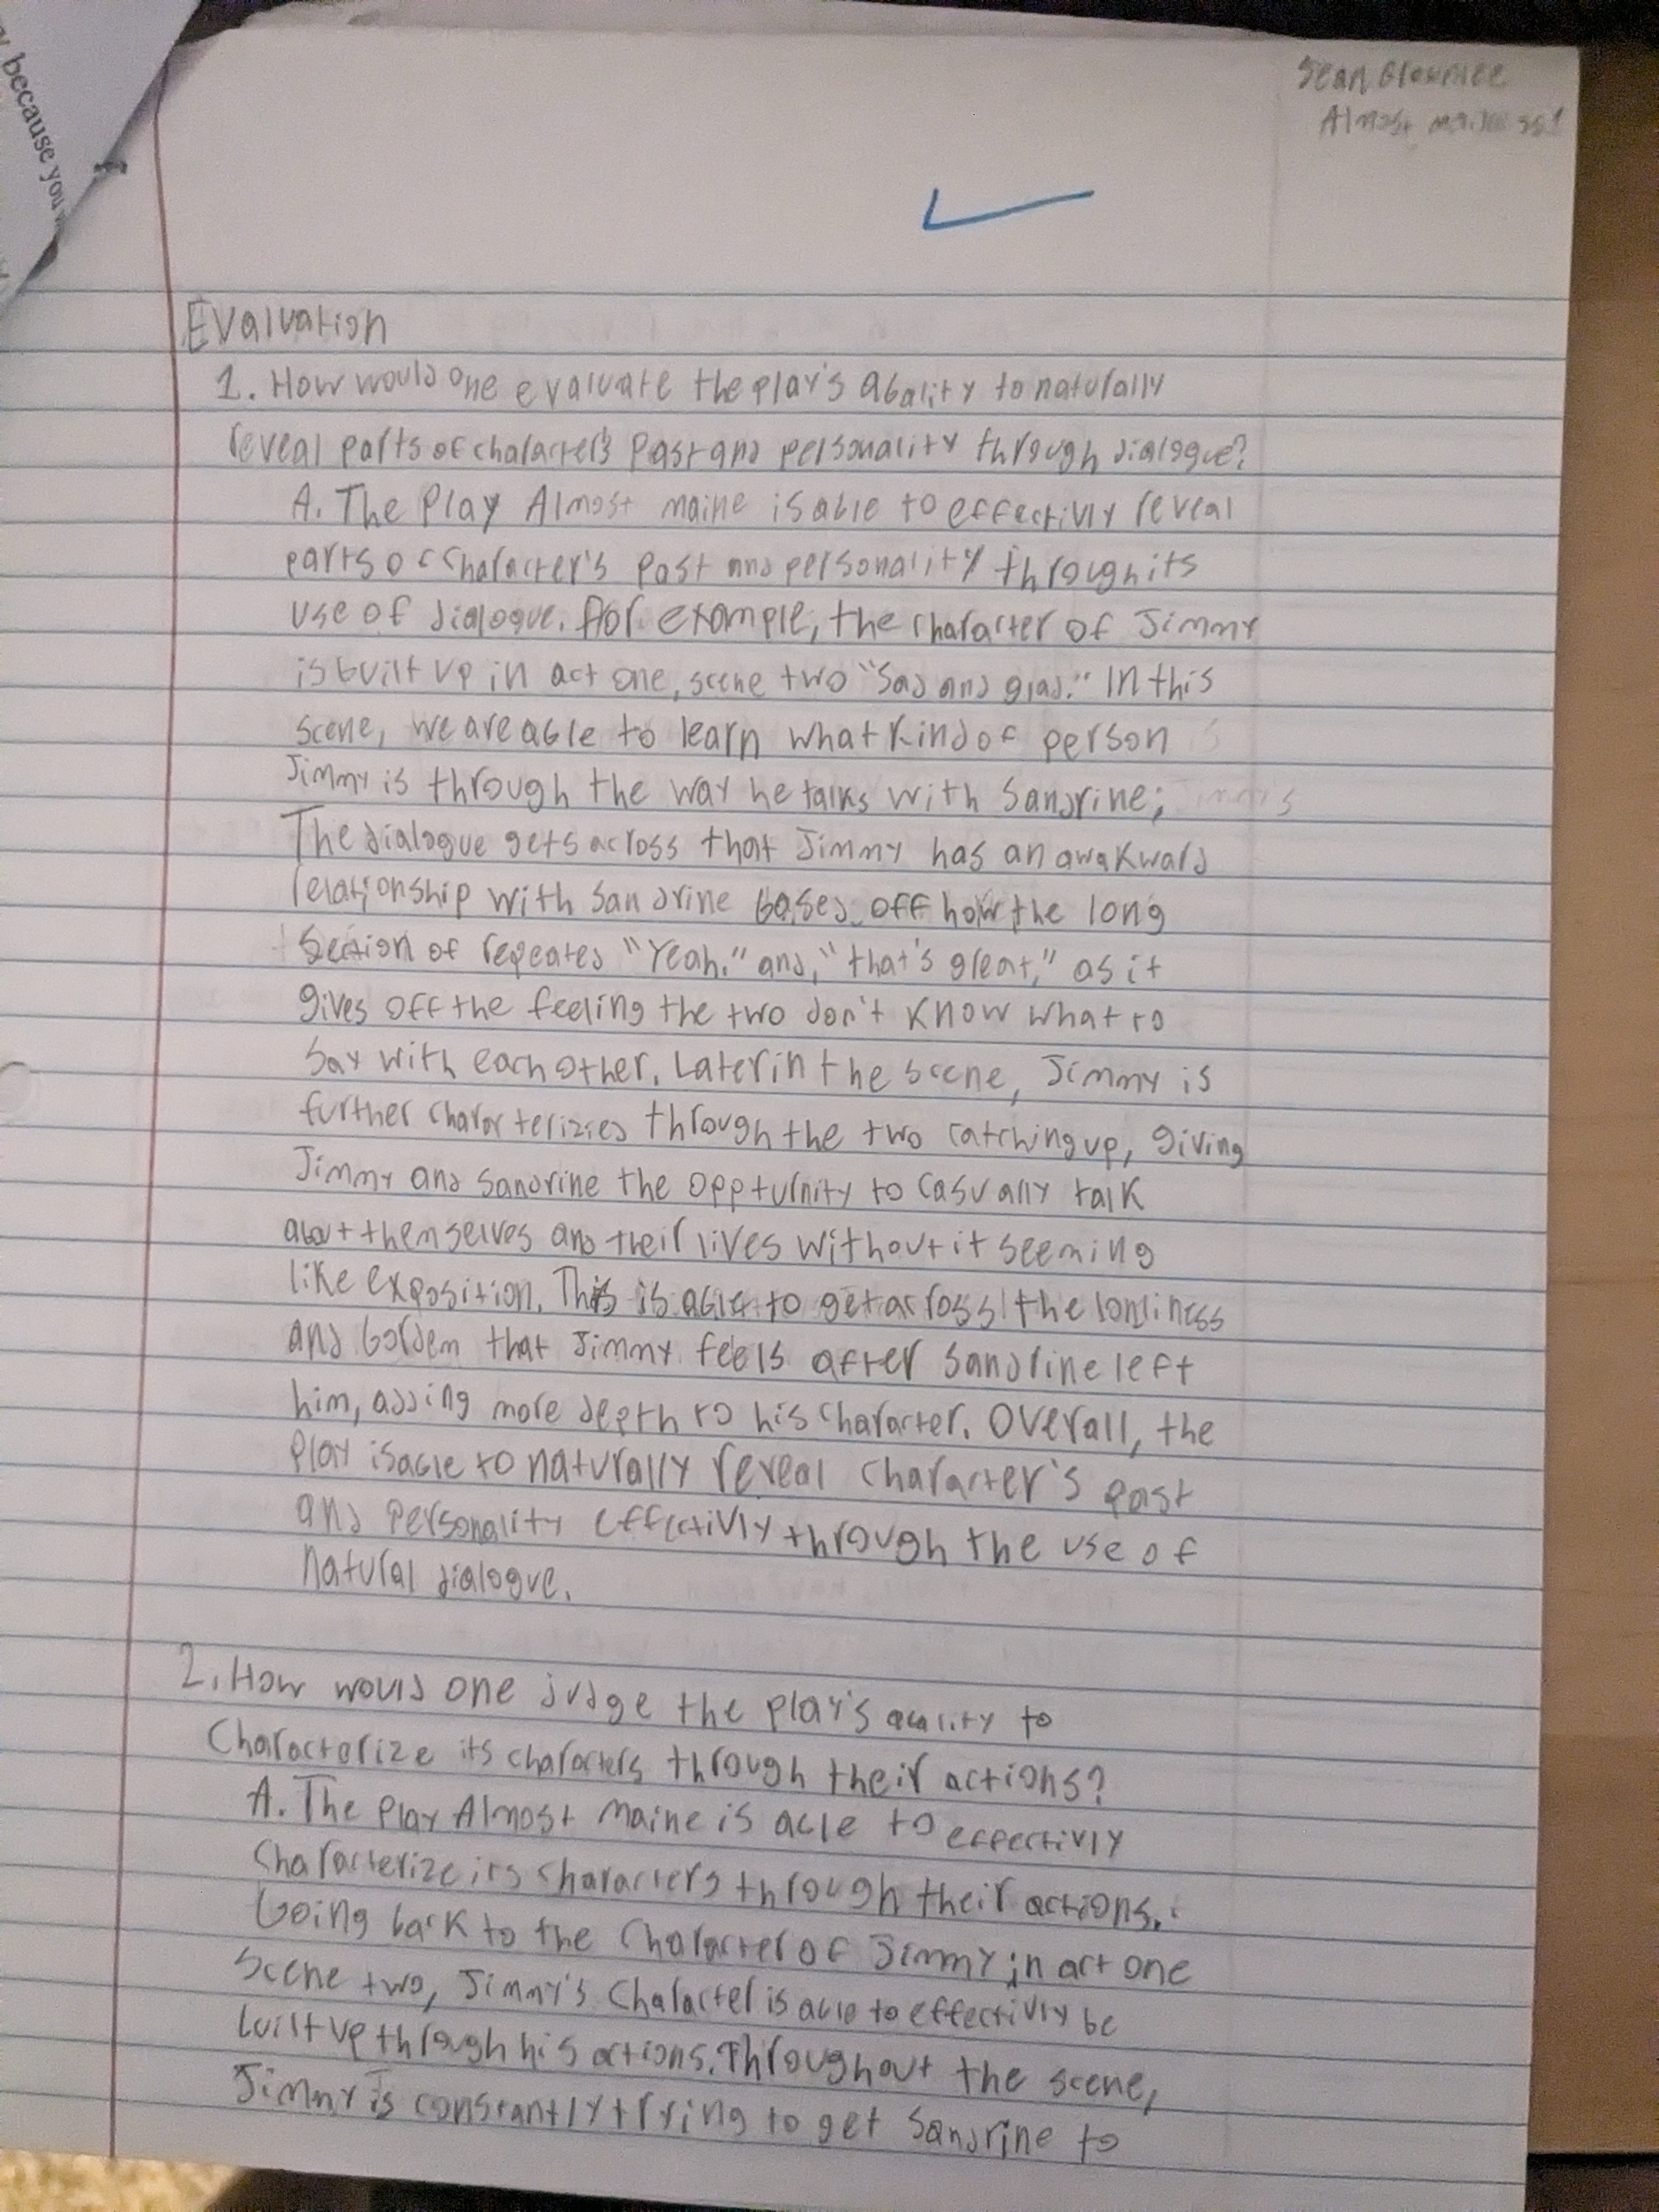 because you
Sean
Almost maine
Evaluation
1. How would one evaluate the play's abality to naturally
reveal parts of character's Past and personality through dialogue?
A. The Play Almost maine is able to effectivly reveal
parts of character's Past and personality through its
use of dialogue. For example, the character of Jimmy
is built up in act one, scene two "Sad and glad." In this
scene, we are able to learn what kind of person
Jimmy is through the way he talks with Sandrine;
The dialogue gets across that Jimmy has an awakward
relationship with Sandrine based off how the long
Section of repeated "Yeah." and, "that's great," as it
gives off the feeling the two don't know what to
say with each other. Later in the scene, Jimmy is
further charorterizied through the two catching up, giving
Jimmy and Sandrine the oppturnity to casually talk
about themselves and their lives without it seeming
like exposition. This is able to get across the lonliness
and bordem that Jimmy feels after Sandrine left
him, adding more depth to his character. Overall, the
play is able to naturally reveal character's past
and personality effectivly through the use of
natural dialogue.
2. How would one judge the play's abality to
Characterize its characters through their actions?
A. The Play Almost Maine is able to effectivly
characterize its characters through their actions.
Going back to the Character of Jimmy in act one
scene two, Jimmy's Character is able to effectivly be
built up through his actions. Throughout the scene,
Jimmy is constantly trying to get Sandrine to